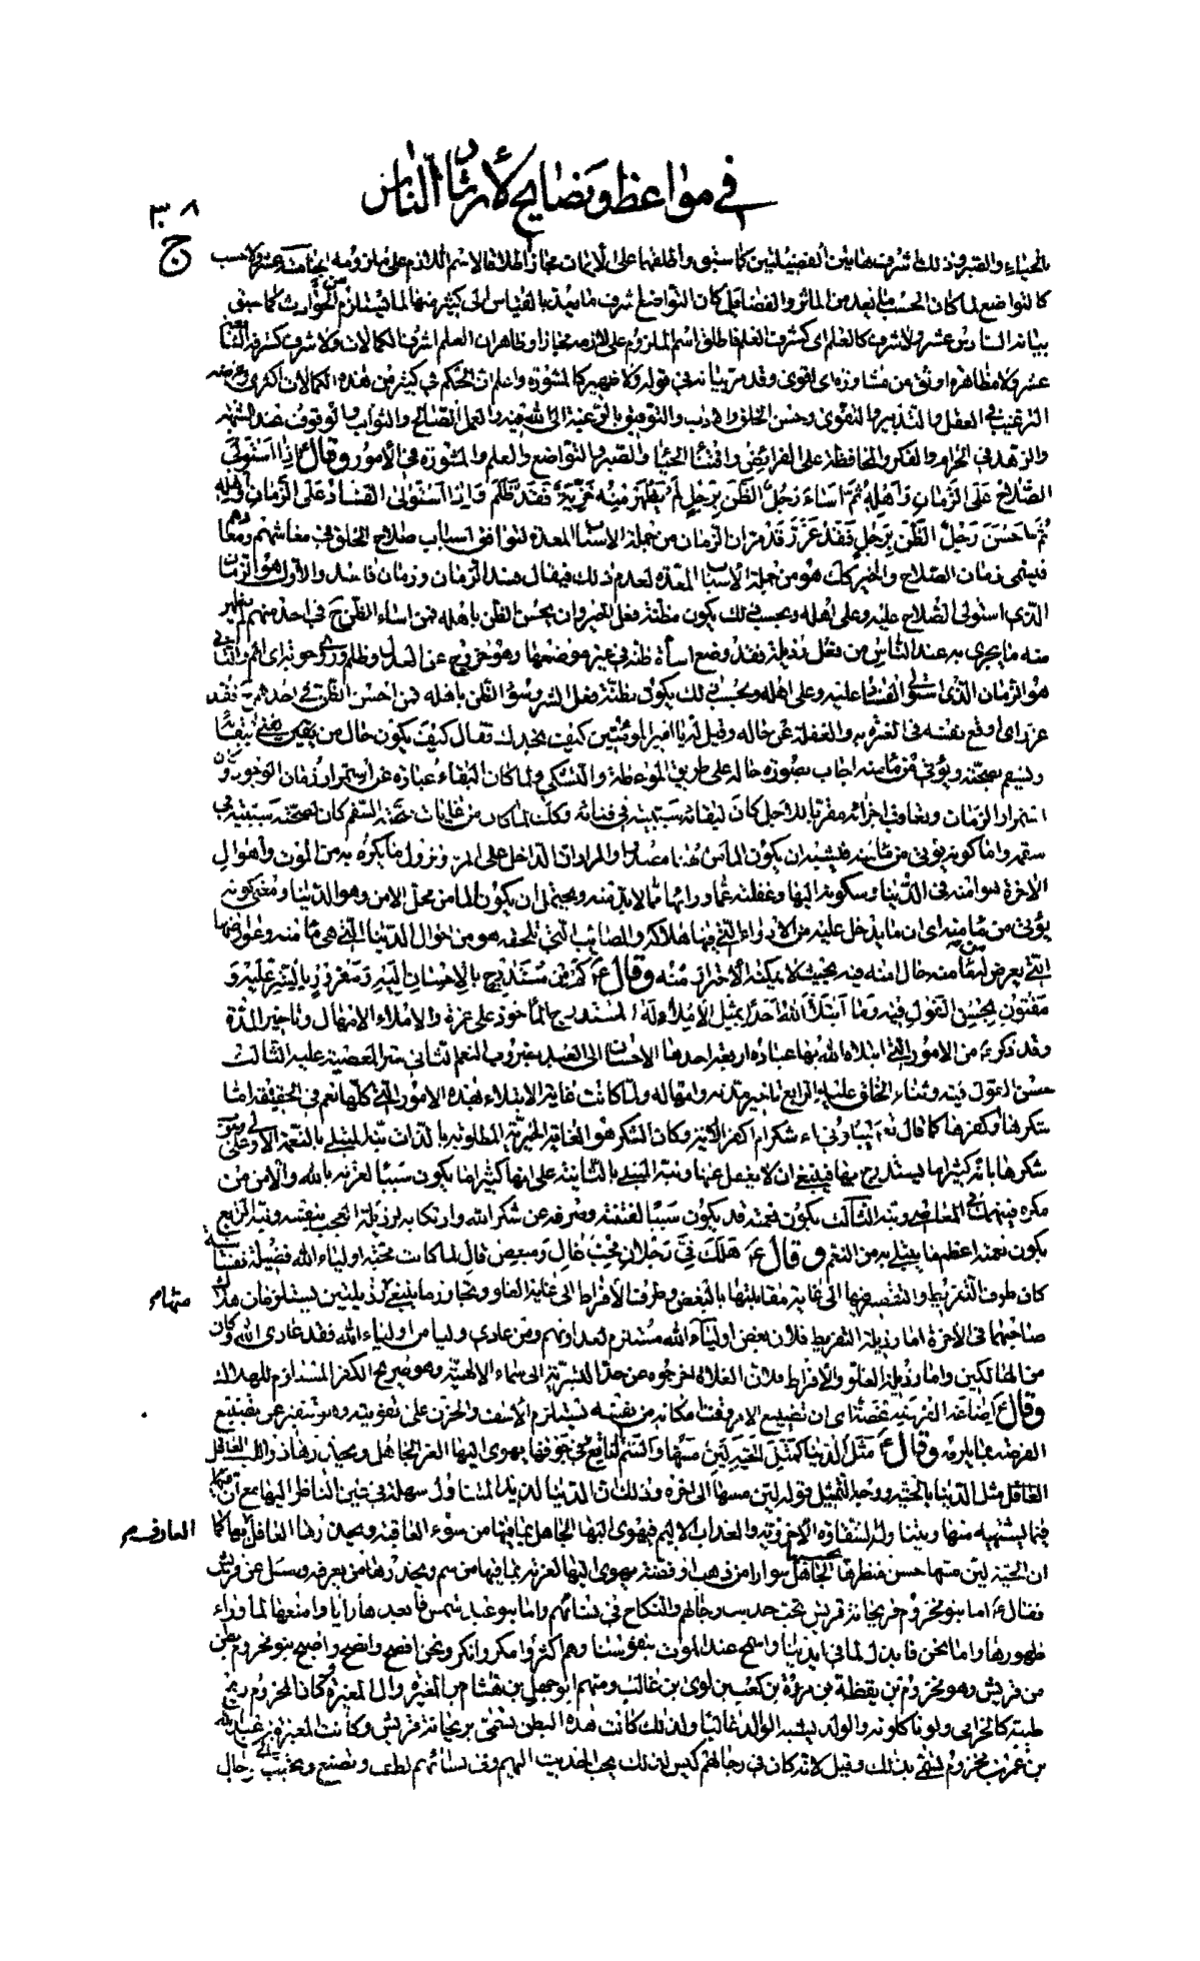 في مواعظ ونصايح لأرشاد الناس
٣٠٨
ج
بالحياء والصبر وذلك لشرف هاتين الفضيلتين كما سبق واطلقهما على الايمان مجازا اطلاقا لاسم اللازم على ملزومه الخامسة عشر ولا حسب
كالتواضع لما كان الحسب ما يعد من المآثر والفضائل كان التواضع اشرف ما يعد بالقياس الى كثير منها لما يستلزم من الخيرات كما سبق
بيانه السادس عشر ولا شرف كالعلم اى كشرف العلم فاطلق اسم الملزوم على لازمه مجازا وظاهر ان العلم اشرف الكمالات ولا شرف كشرفه السابعة
عشر ولا مظاهرة اوثق من مشاورة اى اقوى وقد مر بيانه في قوله ولا ظهير كالمشورة واعلم ان الحكم في كثير من هذه الكمالات اكثرى وغرضه
الترغيب في العقل والتدبير والتقوى وحسن الخلق والادب والتوفيق بالرغبة الى الله فيه والعمل الصالح والثواب والوقوف عند الشبهة
والزهد في الحرام والفكر والمحافظة على الفرائض واقتناء الحياء والصبر والتواضع والعلم والمشورة في الأمور وقال ع اذا استولى
الصلاح على الزمان واهله ثم اساء رجل الظن برجل لم يظهر منه خزية فقد ظلم واذا استولى الفساد على الزمان واهله
ثم احسن رجل الظن برجل فقد غرر قد مر ان الزمان من جملة الاسباب المعدة لتوافق اسباب صلاح الخلق في معاشهم ومعادهم
فيسمى زمان الصلاح والخير كك هو من جملة الاسباب المعدة لعدم ذلك فيقال هذا الزمان وزمان فاسد والاول هو الزمان
الذى استولى الصلاح عليه وعلى اهله وبحسب ذلك يكون مظنة فعل الخير وان يحسن الظن باهله فمن اساء الظن ح في احد منهم لم يظهر
منه ما يخزى به عند الناس من فعل رذيلة فقد وضع اساءة ظنه في غير موضعها وهو خروج عن العدل وظلم والثانى
هو الزمان الذى استولى الفساد عليه وعلى اهله وبحسب ذلك يكون مظنة فعل الشر وسوء الظن باهله فمن احسن الظن في احدهم ح فقد
غرر اى اوقع نفسه في الغرة به والغفلة عن حاله وقيل له يا امير المؤمنين كيف تجدك فقال كيف يكون حال من يفنى ببقائه
ويسقم بصحته ويؤتى من مأمنه اجاب بصورة حاله على طريق الموعظة والتشكى ولما كان البقاء عبارة عن استمرار زمان الوجود وكان
استمرار الزمان وتعاقب اجزائه مقربا للاجل كان لبقائه سببية في فنائه وكك لما كان من غايات صحته السقم كان لصحته سببية في
سقمه واما كونه يؤتى من مأمنه فيشبه ان يكون المأمن هنا مصدرا والمراد ان الداخل على المرء ونزول ما يكره به من الموت واهوال
الآخرة هو امنه في الدنيا وسكونه اليها وغفلته عما وراءها مما لا بد منه ويحتمل ان يكون المأمن محل الامن وهو الدنيا ومعنى كونه
يؤتى من مأمنه اى ان ما يدخل عليه من الادواء التي فيها هلاكه والمصائب التي تلحقه هو من احوال الدنيا التي هي مأمنه وعوارضها
التي يعرض له من مأمنه حال امنه فيه بحيث لا يمكنه الاحتراز منه وقال ع كم من مستدرج بالإحسان اليه ومغرور بالستر عليه و
مفتون بحسن القول فيه وما ابتلى الله احدا بمثل الإملاء له المستدرج المأخوذ على غرة والاملاء الامهال وتاخير المدة
وقد ذكر ع من الامور التي ابتلاه الله بها عباده اربعة احدها الاحسان الى العبد بضروب النعم الثانى ستر المعصية عليه الثالث
حسن القول فيه وثناء الخلق عليه الرابع تاخير مدته وامهاله ولما كانت غاية الابتلاء بهذه الامور التي كلها نعم في الحقيقة اما
شكرها او كفرها كما قال تعالى ليبلونى ءاشكر ام اكفر الآية وكان الشكر هو الغاية الخيرية المطلوبة بالذات نبه المبتلى بالنعمة الاولى على
شكرها بانه كثيرا ما يستدرج بها فينبغى ان لا يغفل عنها ونبه المبتلى بالثانية على انها كثيرا ما يكون سببا لغرته بالله والأمن من
مكره فينهمك في المعاصى ونبه الثالث بكون نعمته قد يكون سببا لفتنته وصرفه عن شكر الله وارتكابه لرذيلة العجب بنفسه ونبه الرابع
بكون نعمته اعظم ما يبتلى به من النعم وقال ع هلك في رجلان محب غال ومبغض قال لما كانت محبة اولياء الله فضيلة نفسانية
كان طرف التفريط والتقصير فيها الى غاية مقابلتها بالبغض وطرف الافراط الى غاية الغلو وتجاوز ما ينبغي رذيلتين يستلزمان هلاك
منهما م
صاحبهما في الآخرة اما رذيلة التفريط فلان بعض اولياء الله مستلزم لعداوتهم ومن عادى وليا من اولياء الله فقد عادى الله وكان
من الهالكين واما رذيلة الغلو والافراط فلان الغلاة اخرجوه من حد البشرية الى سماء الالهية وهو صريح الكفر المستلزم للهلاك
وقال ع اضاعة الفرصة غصة اى ان تضييع الامر وقت مكانه من نفسه يستلزم الاسف والحزن على تفويته وهو تنفير عن تضييع
الفرصة بما يلزمه وقال ع مثل الدنيا كمثل الحية لين مسها والسم الناقع في جوفها يهوى اليها الغر الجاهل ويحذرها ذو اللب العاقل
العاقل مثل الدنيا بالحية ووجه التمثيل قوله لين مسها الى آخره وذلك ان الدنيا لذيذ المتناول سهلة في عين الناظر اليها مع ان فيها
فيما يشتهيه منها وبينا ولذ الشقاوة الاخروية والعذاب الاليم فيهوى اليها الجاهل بما فيها من سوء العاقبة ويحذرها العاقل بها كما
العارف م
ان الحية لين مسها حسن منظرها يحسبها الجاهل سوارا من ذهب او فضة فيهوى اليها لغرته بما فيها من سم ويحذرها من يعرفه وسئل عن قريش
فقال ع اما بنو مخزوم فريحانة قريش تحب حديث رجالهم والنكاح في نسائهم واما بنو عبد شمس فابعدها رايا وامنعها لما وراء
ظهورها واما نحن فابذل لما في ايدينا واسمح عند الموت بنفوسنا وهم اكثر وامكر وانكر ونحن افصح وانصح واصبح بنو مخروم بطن
من قريش وهو مخزوم بن يقظة بن مرة بن كعب بن لوى بن غالب ومنهم ابو جهل بن هشام بن المغيرة وآل المغيرة كان لمخزوم ريح
طيبة كالخزامى ولونا كلونه والولد يشبه الوالد غالبا ولذلك كانت هذه البطن تسمى بريحانة قريش وكانت المغيرة بن عبد الله
بن عمر بن مخزوم تسمى بذلك وقيل لانه كان في رجالهم كيس لذلك يحب الحديث اليهم وفي نسائهم لطف وتصنع وتحبب الى رجال